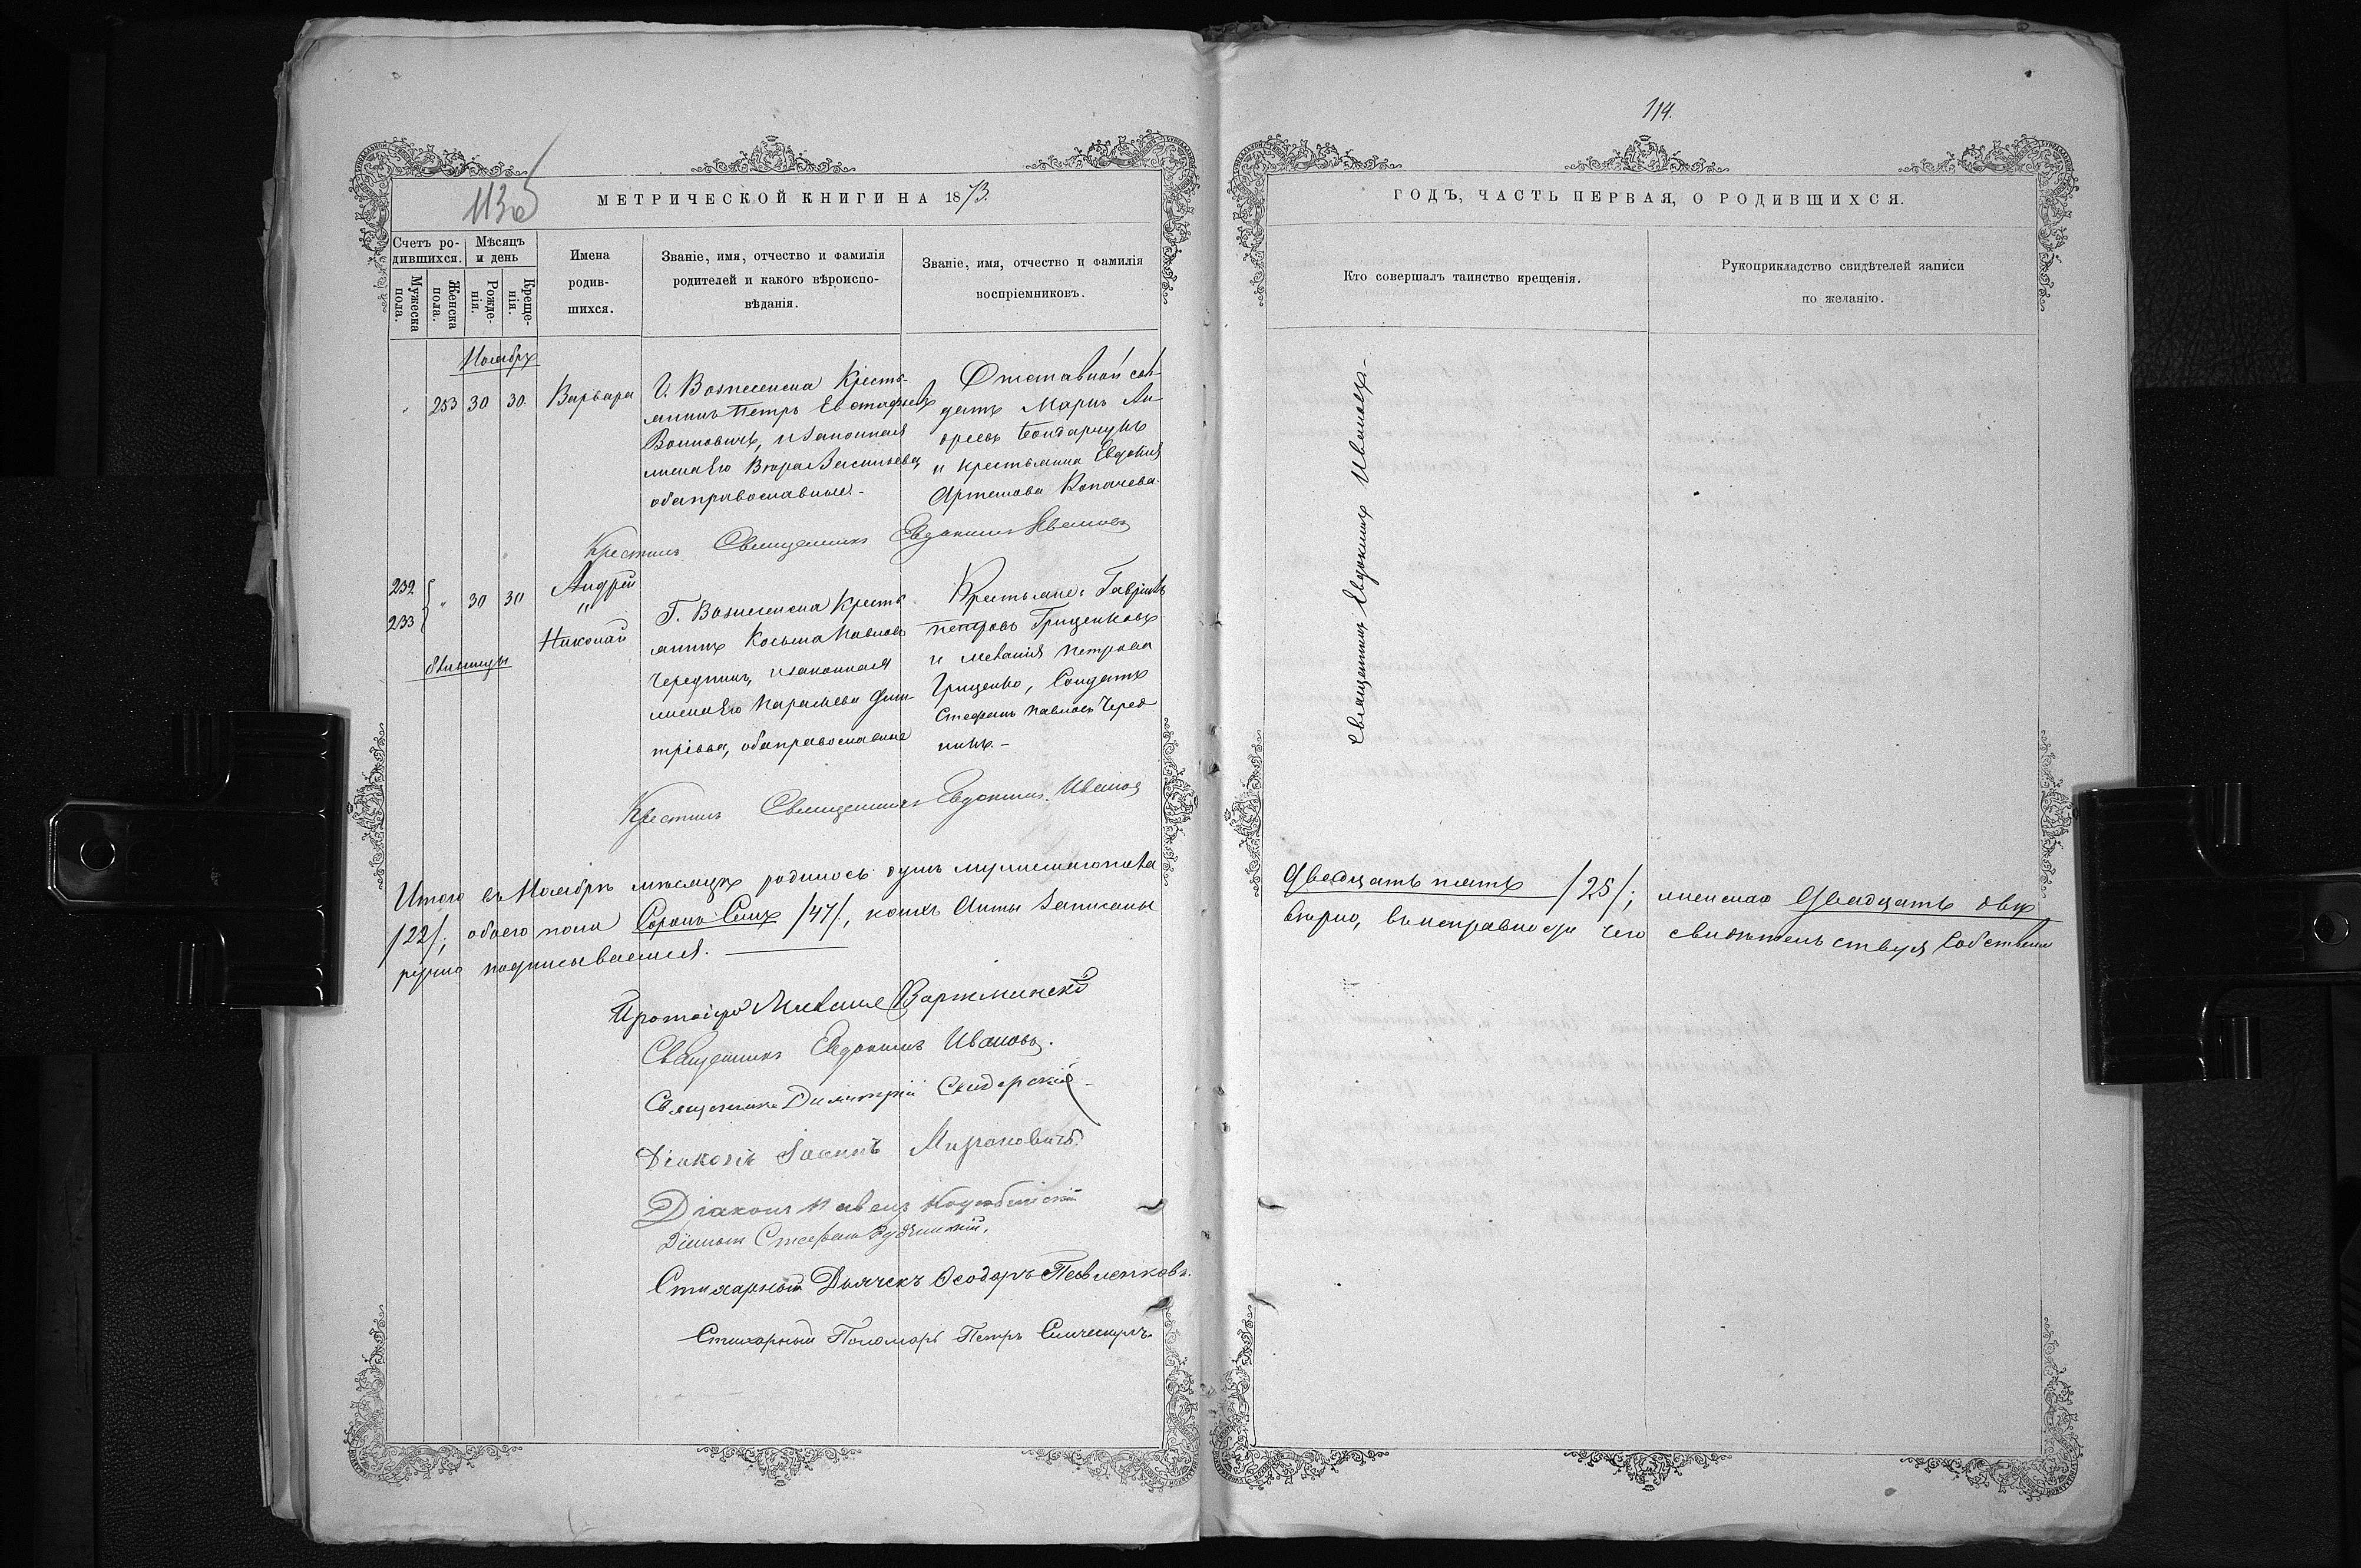 113об
МЕТРИЧЕСКОЙ КНИГИ НА 1873.
Счетъ ро-
дившихся.
Мѣсяцъ
и день
Мужеска
пола.
Женска
пола.
Рожде-
нія.
Креще-
нія.
Имена
родив-
шихся.
Званіе, имя, отчество и фамилія
родителей и какого вѣроиспо-
вѣданія.
Званіе, имя, отчество и фамилія
воспріемниковъ.
Ноябрь
" 253 30 30. Варвара
Г. Вознесенска Кресть-
янинъ Петръ Евстафьевъ
Воиновичъ, и законная
жена его Вѣра Васильева,
оба православные.-
Отставной сол-
датъ Маркъ Ан
дреевъ Бондарчукъ
и крестьянка Евдокія
Артемова Копачева
Крестилъ Священникъ Евдокимъ Ивановъ
232
233
" 30 30
близнецы
Андрей
"
Николай
Г. Вознесенска Кресть
янинъ Косьма Павловъ
Чередникъ, и законная
жена его Параскева Дими
тріева, оба православные
Крестьяне: Гавріилъ
Петровъ Гриценковъ
и Меланія Петрова
Гриценко, Солдатъ
Стефанъ Павловъ Черед
никъ.-
Крестилъ Священникъ Евдокимъ Ивановъ
Итого въ Ноябрѣ мѣсяцѣ родилось душъ мужескаго пола
/22/; обоего пола Сорокъ Семь /47/, коихъ Акты записаны
ручно подписываемся.
Протоіерей Варжминскій
Священникъ Евдокимъ Ивановъ.
Священникъ Димитрій Сендерскій
Діаконъ Іоаннъ Мирановичъ.
Діаконъ Павелъ
Діаконъ Стефанъ Рудзинскій.
Стихарный Дьячекъ Ѳеодоръ Павленковъ.
Стихарный Пономарь Петръ
114.
ГОДЪ, ЧАСТЬ ПЕРВАЯ, О РОДИВШИХСЯ.
Кто совершалъ таинство крещенія.
Рукоприкладство свидѣтелей записи
по желанію.
Священникъ Евдокимъ Ивановъ.-
Двадцать пять /25/; женскаго Двадцать двѣ
вѣрно, въ исправности чего свидѣтельствуя собственно